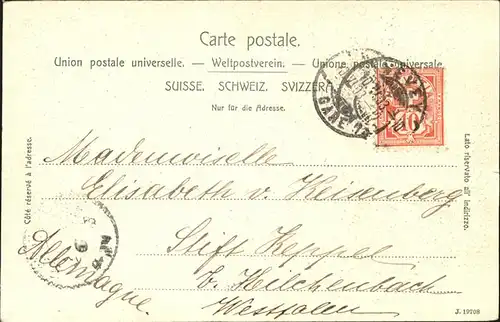 Carte postale.
Union postale universelle. — Weltpostverein. — Unione postale universale.
SUISSE. SCHWEIZ. SVIZZERA
Nur für die Adresse.
10
Côté réservé à l'adresse.
Lato riservato all' indirizzo.
Mademoiselle
Elisabeth v. Reisenberg
Stift Keppel
b. Hilchenbach
Westfalen
Allemagne.
J. 19798